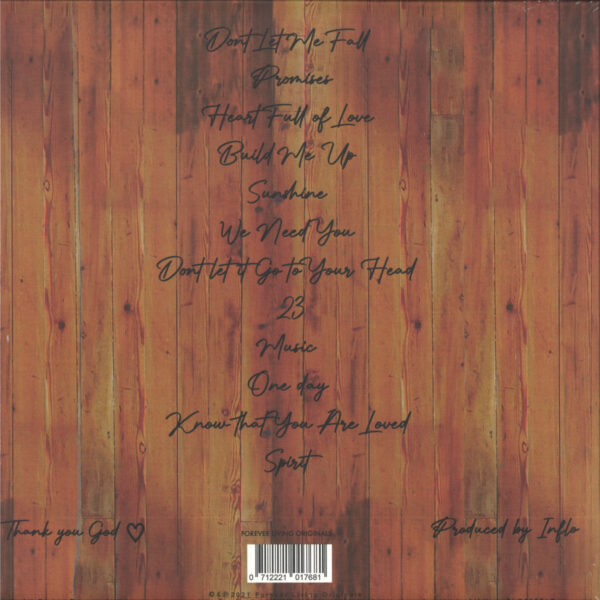 Dont Let Me Fall
Promises
Heart Full of Love
Build Me Up
Sunshine
We Need You
Dont let it Go to Your Head
23
Music
One day
Know that You Are Loved
Spirit
Thank you God ♡
Produced by Inflo
FOREVER LIVING ORIGINALS
0 712221 017681
©&℗ 2021 Forever Living Originals